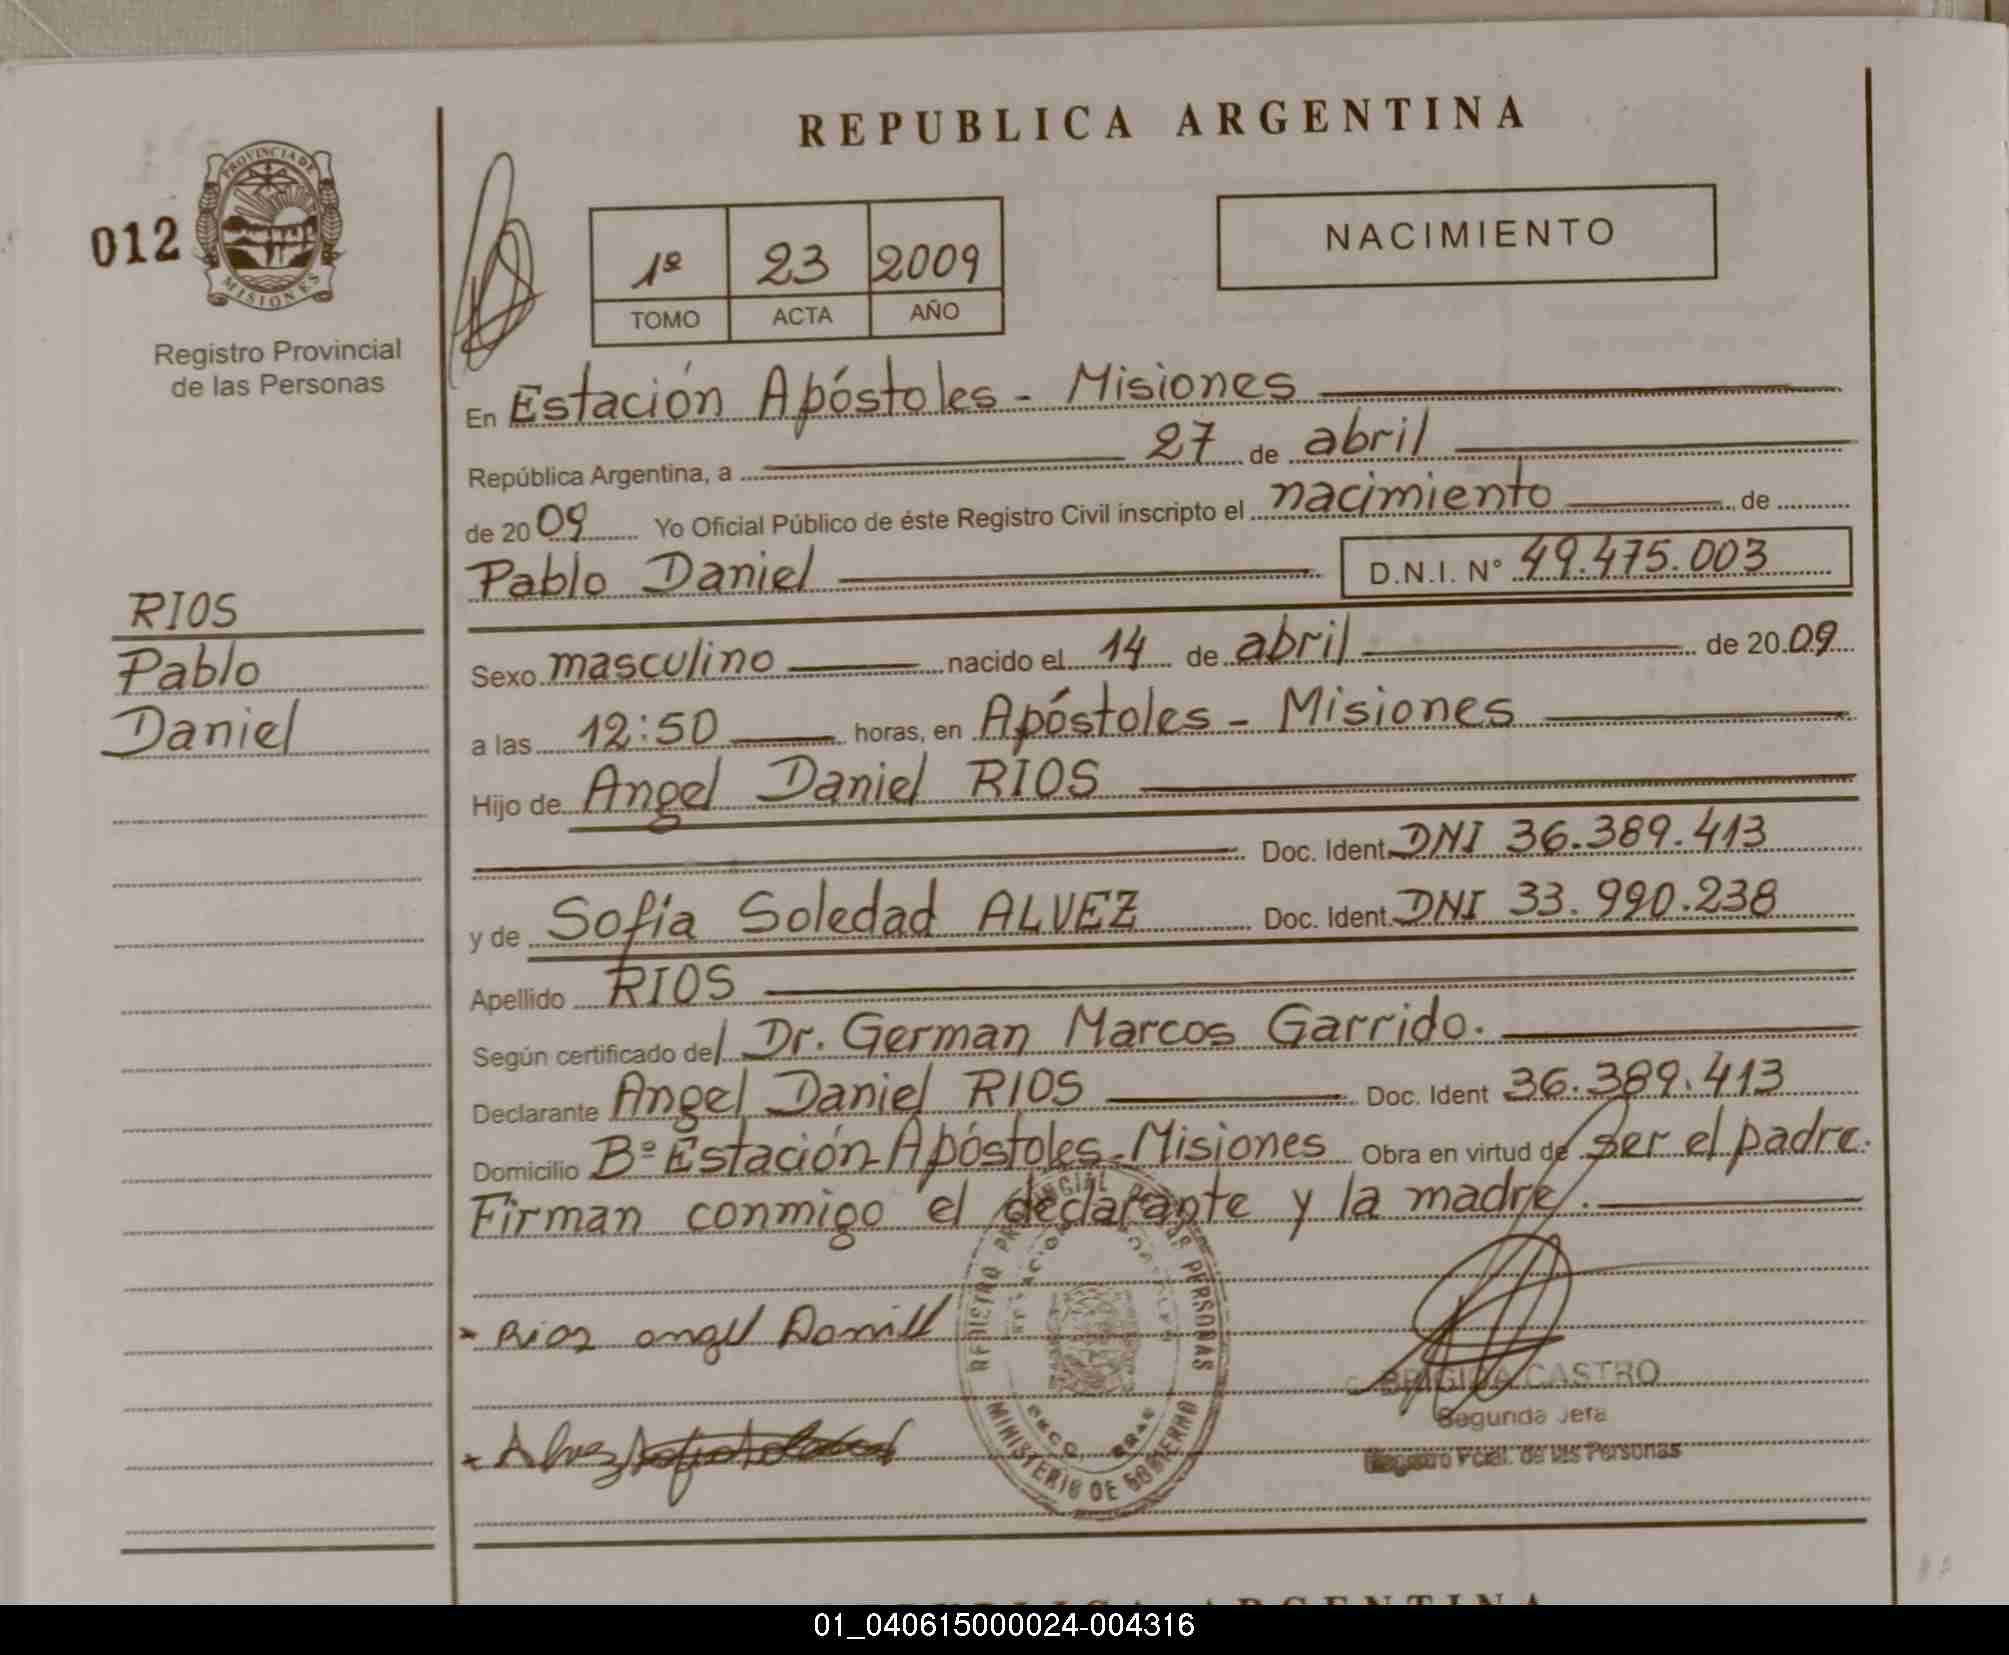 REPUBLICA ARGENTINA
012
PROVINCIA DE
MISIONES
Registro Provincial
de las Personas
1º 23 2009
TOMO ACTA AÑO
NACIMIENTO
En Estación Apóstoles - Misiones
República Argentina, a 27 de abril
de 2009 Yo Oficial Público de éste Registro Civil inscripto el nacimiento de
Pablo Daniel D.N.I. Nº 49.475.003
RIOS
Pablo
Daniel
Sexo masculino nacido el 14 de abril de 2009
a las 12:50 horas, en Apóstoles - Misiones
Hijo de Angel Daniel RIOS
Doc. Ident. DNI 36.389.413
y de Sofía Soledad ALVEZ Doc. Ident. DNI 33.990.238
Apellido RIOS
Según certificado del Dr. German Marcos Garrido.
Declarante Angel Daniel RIOS Doc. Ident 36.389.413
Domicilio Bº Estación-Apóstoles-Misiones Obra en virtud de ser el padre.
Firman conmigo el declarante y la madre.
Rios angel Daniel
Alvez
REGISTRO PROVINCIAL DE LAS PERSONAS
MINISTERIO DE GOBIERNO
BRIGIDA CASTRO
Segunda Jefa
Registro Pcial. de las Personas
REPUBLICA ARGENTINA
01_040615000024-004316